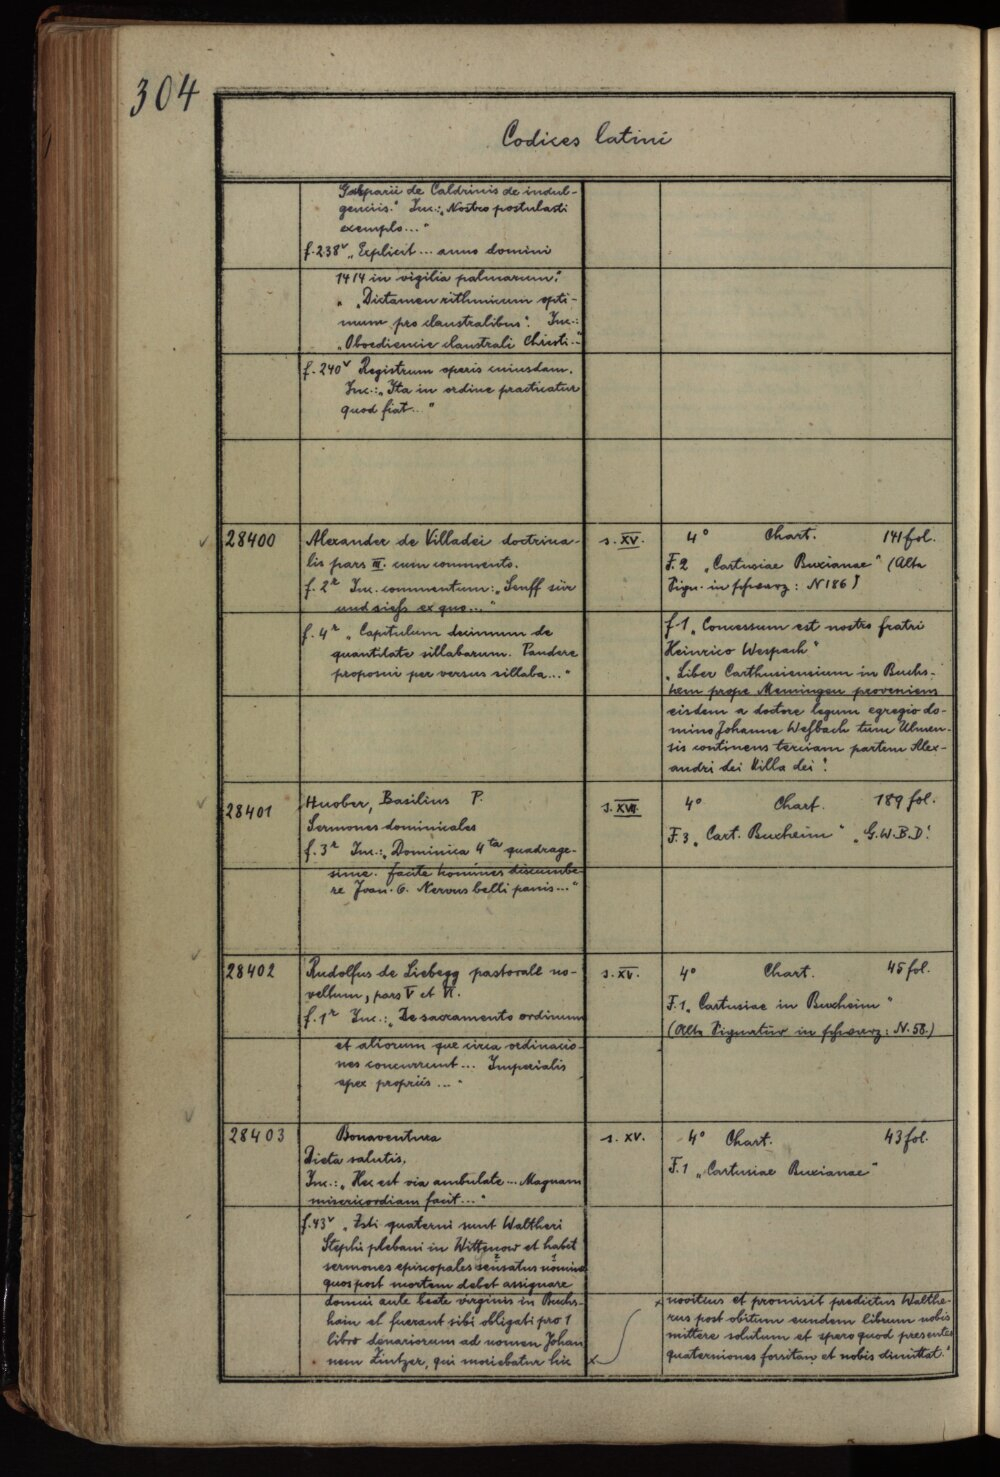 304
Codices latini
Gasparii de Caldrinis de indul-
genciis." Inc.: „Nostro postulasti
exemplo..."
f. 238v „Explicit... anno domini
1414 in vigilia palmarum."
" „Dictamen rithmicum opti-
mum pro claustralibus". Inc.:
„Oboediencie claustrali Christi..."
f. 240v Registrum operis cuiusdam.
Inc.: „Ita in ordine practicatur
quod fiat..."
28400
Alexander de Villadei doctrina-
lis pars III. cum commento.
f. 2r Inc. commentum: „Senff sür
und siess ex quo..."
f. 4r „Capitulum decimum de
quantitate sillabarum. Pandere
proposui per versus sillaba..."
s. XV.
4° Chart. 141 fol.
F. 2 „Cartusiae Buxianae" (Alte
Sign. in schwarz: N 186)
f. 1 „Concessum est nostro fratri
Heinrico Wespach"
„Liber Carthusiensium in Buchs-
hem prope Memingen proveniens
eisdem a doctore legum egregio do-
mino Johanne Wesbach tunc Ulmen-
sis continens terciam partem Alex-
andri dei Villa dei".
28401
Huober, Basilius P.
Sermones dominicales
f. 3r Inc.: „Dominica 4ta quadrage-
sime. facite homines discumbe-
re Joan. 6. Nervus belli panis..."
s. XVII.
4° Chart. 189 fol.
F. 3 „Cart. Buxheim" „G.W.B.D."
28402
Rudolfus de Liebegg pastorale no-
vellum, pars V et VI.
f. 1r Inc.: „De sacramento ordinum
et aliorum que circa ordinacio-
nes concurrunt... Imperialis
apex propriis..."
s. XV.
4° Chart. 45 fol.
F. 1 „Cartusiae in Buxheim"
(Alte Signatur in schwarz: N. 58.)
28403
Bonaventura
Dieta salutis.
Inc.: „Hec est via ambulate... Magnam
misericordiam facit..."
f. 43v „Isti quaterni sunt Waltheri
Stephi plebani in Wittenow et habet
sermones episcopales sensatus nomine
quos post mortem debet assignare
domui aule beate virginis in Buchs-
hain et fuerant sibi obligati pro 1
libro denariorum ad nomen Johan
nem Zintzer, qui moriebatur hic
s. XV.
4° Chart. 43 fol.
F. 1 „Cartusiae Buxianae"
x novitius et promisit predictus Walthe-
rus post obitum eundem librum nobis
mittere solutum et spero quod presentes
quaterniones forsitan et nobis dimittat."